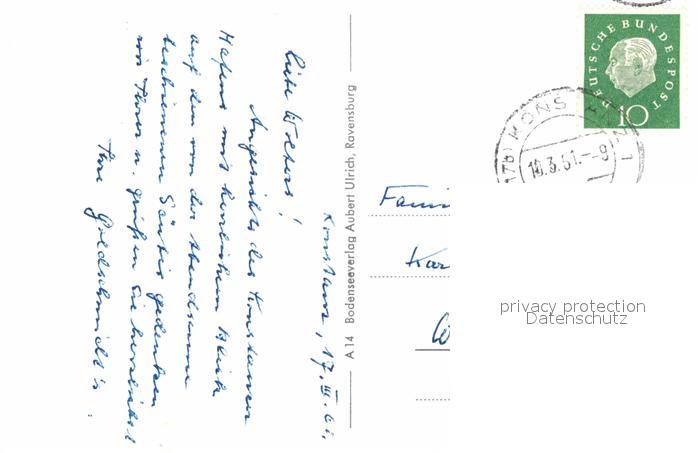 Konstanz, 17. III. 61.
Liebe Wolters!
Angesichts des Konstanzer
Hafens mit herrlichem Blick
auf den von der Abendsonne
beschienenen Säntis gedenken
wir Ihrer u. grüßen Sie herzlichst
Ihre Goldschmidt's.
A 14 Bodenseeverlag Aubert Ulrich, Ravensburg
DEUTSCHE BUNDESPOST
10
KONS
.3.61.--9
Fami
Kar
privacy protection
Datenschutz